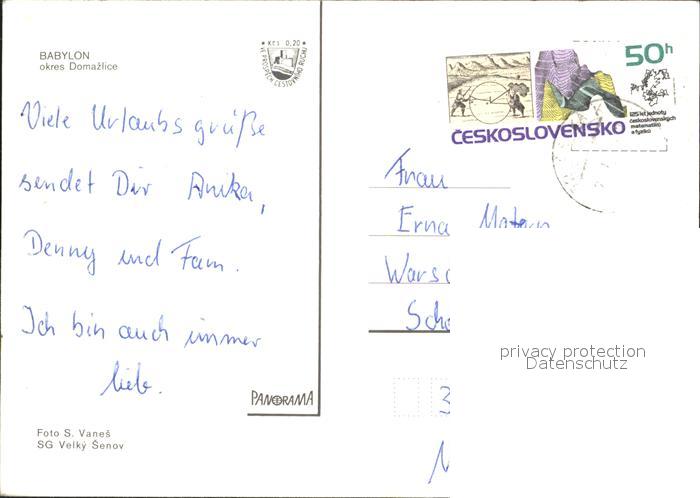 BABYLON
okres Domažlice
Kčs 0,20
VE PROSPĚCH CESTOVNÍHO RUCHU
Viele Urlaubsgrüße
sendet Dir Anika,
Denny und Fam.
Ich bin auch immer
lieb.
PANORAMA
Foto S. Vaneš
SG Velký Šenov
50h
125 let jednoty
československých
matematiků
a fyziků
ČESKOSLOVENSKO
Frau
Erna
privacy protection
Datenschutz
3